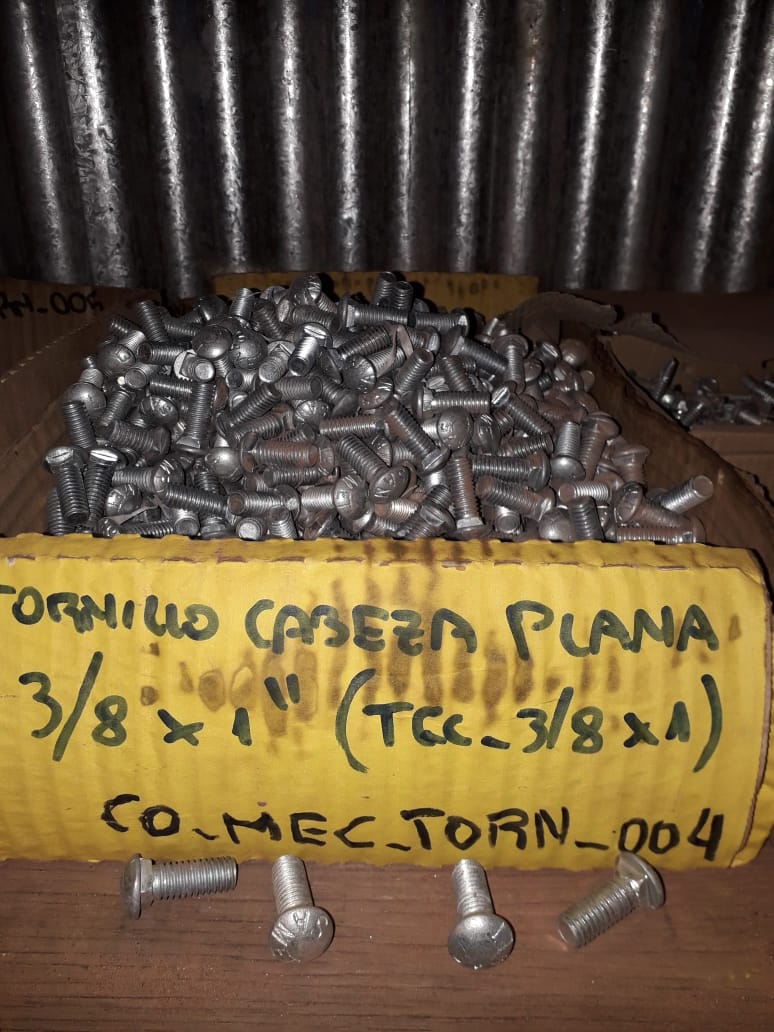 TORNILLO CABEZA PLANA
3/8 x 1" (TCC_3/8 x 1)
CO_MEC_TORN_004